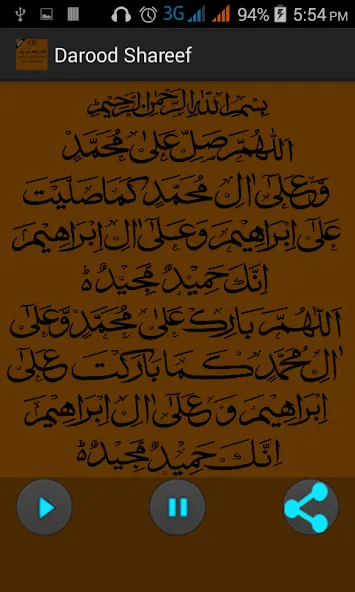 3G 94% 5:54 PM
Darood Shareef
بِسْمِ اللهِ الرَّحْمٰنِ الرَّحِيْمِ
اَللّٰهُمَّ صَلِّ عَلٰى مُحَمَّدٍ
وَّعَلٰٓى اٰلِ مُحَمَّدٍ كَمَا صَلَّيْتَ
عَلٰٓى اِبْرَاهِيْمَ وَعَلٰٓى اٰلِ اِبْرَاهِيْمَ
اِنَّكَ حَمِيْدٌ مَّجِيْدٌ ط
اَللّٰهُمَّ بَارِكْ عَلٰى مُحَمَّدٍ وَّعَلٰٓى
اٰلِ مُحَمَّدٍ كَمَا بَارَكْتَ عَلٰٓى
اِبْرَاهِيْمَ وَعَلٰٓى اٰلِ اِبْرَاهِيْمَ
اِنَّكَ حَمِيْدٌ مَّجِيْدٌ ط